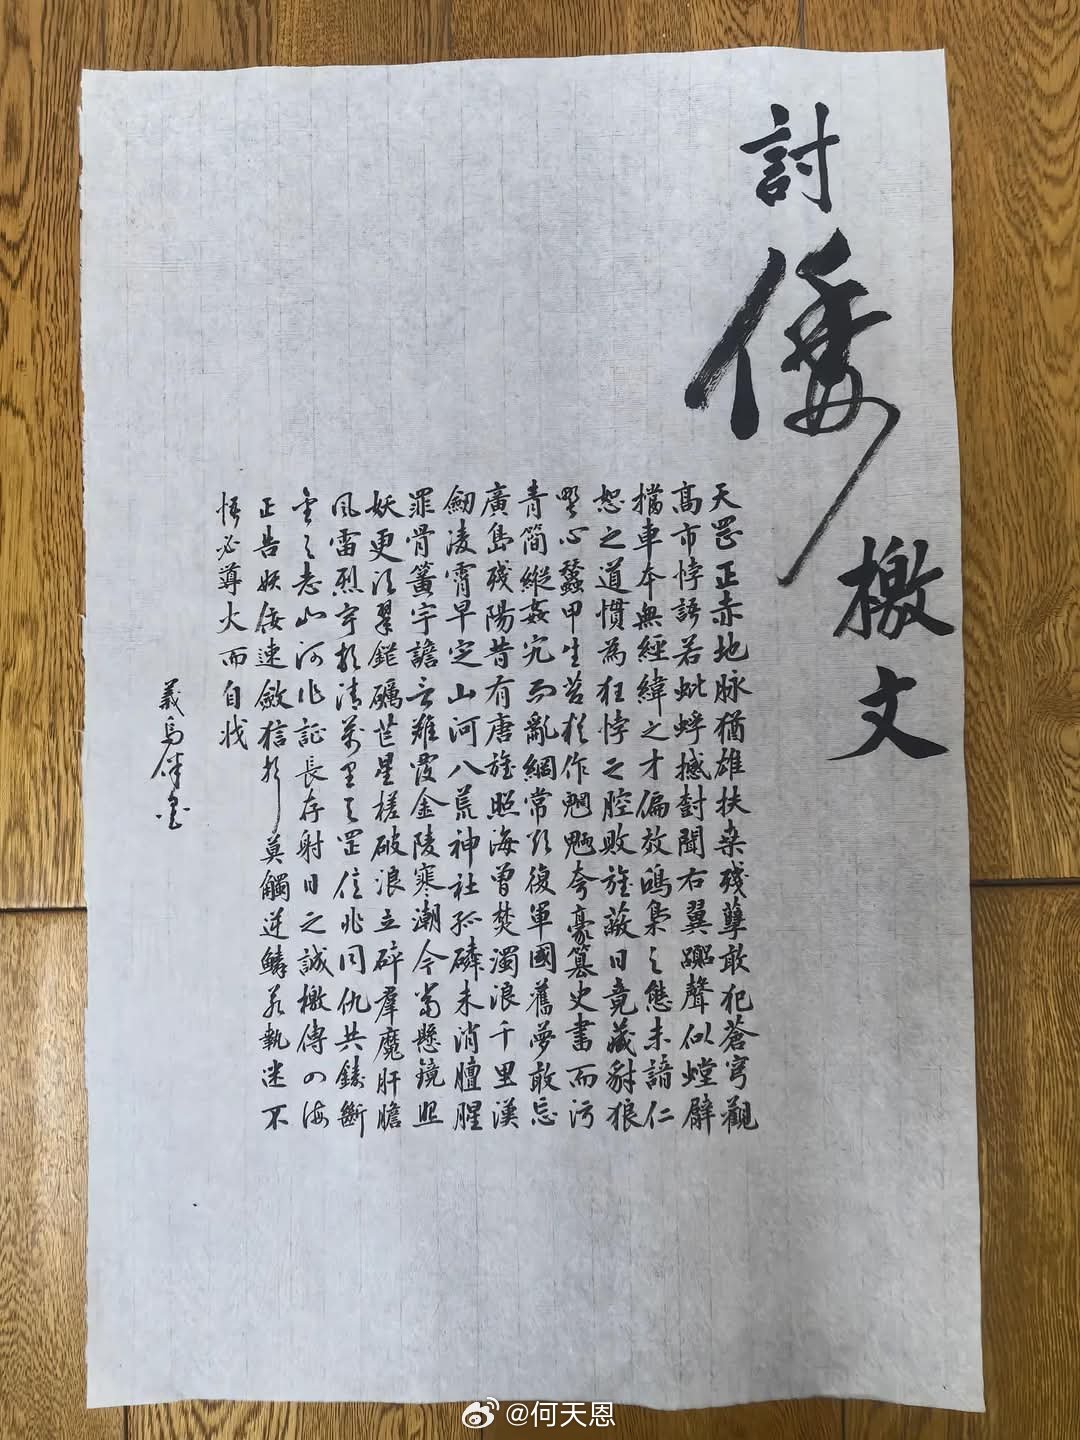 討倭檄文
天罡正赤地脉猶雄扶桒殘孽敢犯蒼穹觀
高市悖語若蚍蜉撼樹聞右翼躁聲似螳臂
擋車本無經緯之才偏效鴟梟之態未諳仁
恕之道慣為狂悖之腔敗旌蔽日竟藏豺狼
野心蠶甲生苔猶作魍魎夸豪篡史書而污
青簡縱姦宄而亂綱常欲復軍國舊夢敢忘
廣島殘陽昔有唐旌照海曾焚濁浪千里漢
劒凌霄早定山河八荒神社孤磷未消膻腥
罪骨簧宇譫言難覆金陵寒潮今當懸鏡照
妖更須礪芒星槎破浪立碎羣魔肝膽
風雷烈宇清萬里之罡信兆同仇共鑄斷
金之志山河作証長存射日之誠檄傳四海
正告妖倭速斂猖莫觸逆鱗若執迷不
悟必蹈火而自戕
義烏
@何天恩